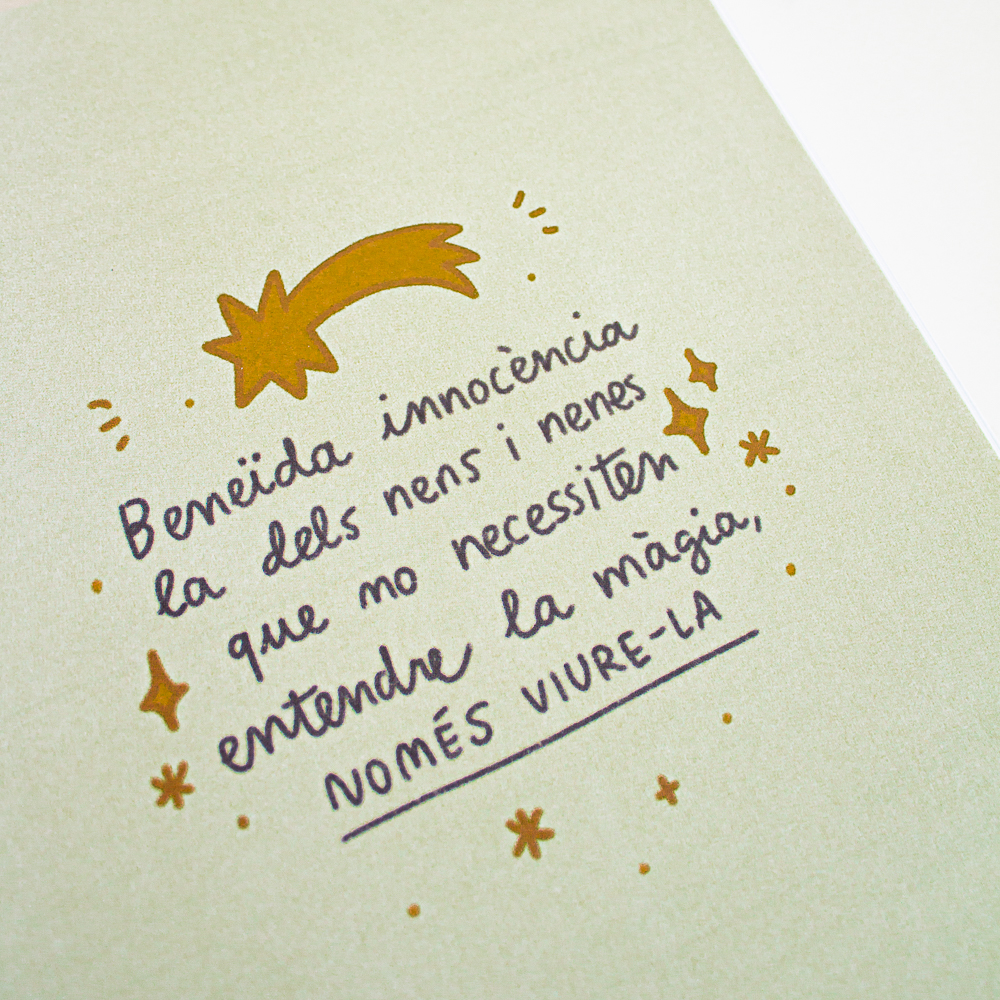 Beneïda innocència
la dels nens i nenes
que no necessiten
entendre la màgia,
NOMÉS VIURE-LA